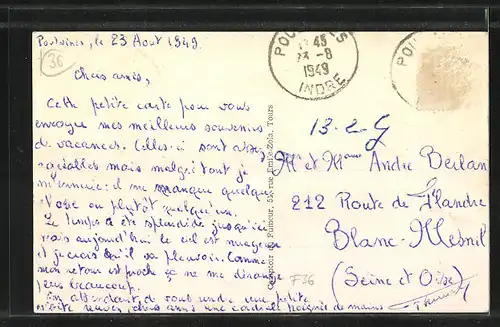 Poulaines, le 23 Août 1949.
36
Chers amis,
Cette petite carte pour vous
envoyer mes meilleurs souvenirs
de vacances. Celles-ci sont assez
agréables mais malgré tout je
m'ennuie: il me manque quelque
chose ou plutôt quelqu'un.
Le temps a été splendide jusqu'ici
mais aujourd'hui le ciel est nuageux
et je crois qu'il va pleuvoir. Comme
mon retour est proche ça ne me dérange
pas beaucoup.
En attendant de vous rendre une petite
visite recevez chers amis une cordiale poignée de mains
Comptoir du Fumeur, 55, rue Emile-Zola, Tours
45
23 -8
1949
INDRE
13-2-G
Mr et Mme André Berlan
212 Route de Flandre
Blanc-Mesnil
(Seine et Oise)
F36